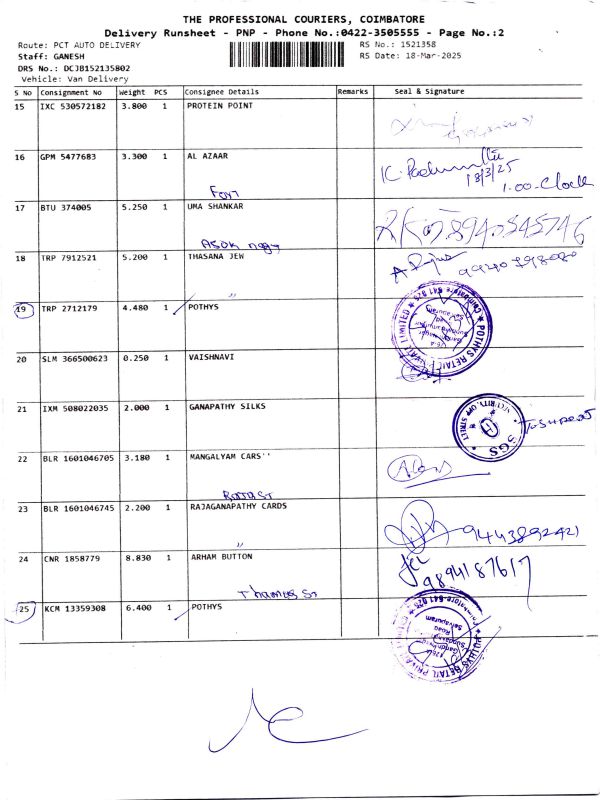 THE PROFESSIONAL COURIERS, COIMBATORE
Delivery Runsheet - PNP - Phone No.:0422-3505555 - Page No.:2
Route: PCT AUTO DELIVERY
RS No.: 1521358
Staff: GANESH
RS Date: 18-Mar-2025
DRS No.: DCJB152135802
Vehicle: Van Delivery
S No Consignment No Weight PCS Consignee Details Remarks Seal & Signature
15 IXC 530572182 3.800 1 PROTEIN POINT
16 GPM 5477683 3.300 1 AL AZAAR
18/3/25
1.00-Clock
17 BTU 374005 5.250 1 UMA SHANKAR
8940545746
18 TRP 7912521 5.200 1 THASANA JEW
"
19 TRP 2712179 4.480 1 POTHYS
POTHYS RETAIL PRIVATE LIMITED
20 SLM 366500623 0.250 1 VAISHNAVI
21 IXM 508022035 2.000 1 GANAPATHY SILKS
SGS
22 BLR 1601046705 3.180 1 MANGALYAM CARS''
Raja St
23 BLR 1601046745 2.200 1 RAJAGANAPATHY CARDS
"
9443892421
24 CNR 1858779 8.830 1 ARHAM BUTTON
9894187617
Thomas St
25 KCM 13359308 6.400 1 POTHYS
POTHYS RETAIL PRIVATE LIMITED